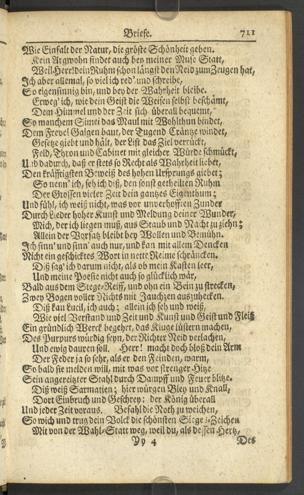 Briefe. 711
Wie Einfalt der Natur, die gröste Schönheit geben.
Kein Argwohn findet auch bey meiner Muse Statt,
Weil Herr! dein Ruhm schon längst den Neid zum Zeugen hat,
Ich aber allemal, so viel ich red' und schreibe,
So eigensinnig bin, und bey der Wahrheit bleibe.
Erweg' ich, wie dein Geist die Weisen selbst beschämt,
Dem Himmel und der Zeit sich überall bequemt,
So manchem Simei das Maul mit Wohlthun bindet,
Dem Frevel Galgen baut, der Tugend Cräntze windet,
Gesetze giebt und hält, der List das Ziel verrückt,
Feld, Thron und Cabinet mit gleicher Würde schmückt,
Und dadurch, daß er stets so Recht als Wahrheit liebet,
Den kräfftigsten Beweiß des hohen Ursprungs giebet;
So nenn' ich, seh ich diß, den sonst getheilten Ruhm
Der Grossen vieler Zeit dein gantzes Eigenthum;
Und fühl, ich weiß nicht, was vor unverhofften Zunder
Durch Lieder hoher Kunst und Meldung deiner Wunder,
Mich, der ich liegen muß, aus Staub und Nacht zu ziehn;
Allein der Vorsatz bleibt bey Wollen und Bemühn.
Ich sinn' und sinn' auch nur, und kan mit allem Dencken
Nicht ein geschicktes Wort in nette Reime schräncken.
Diß sag' ich darum nicht, als ob mein Kasten leer,
Und meine Poesie nicht auch so glücklich wär,
Bald aus dem Stege-Reiff, und ohn ein Bein zu strecken,
Zwey Bogen voller Nichts mit Jauchzen auszuhecken.
Diß kan Eucil, ich auch; allein ich seh und weiß,
Wie viel Verstand und Zeit und Kunst und Geist und Fleiß
Ein gründlich Werck begehrt, das Kluge lüstern machen,
Des Purpurs würdig seyn, der Richter Neid verlachen,
Und ewig dauren soll. Herr! macht doch bloß dein Arm
Der Feder ja so sehr, als er den Feinden, warm,
So bald sie melden will, mit was vor strenger Hitze
Sein angereitzter Stahl durch Dampff und Feuer blitze.
Diß weiß Sarmatien; hier würgen Bley und Knall,
Dort Einbruch und Geschrey: der König überall
Und jeder Zeit voraus. Befahl die Noth zu weichen,
So wich und trug dein Volck die schönsten Sieges-Zeichen
Mit von der Wahl-Statt weg, weil du, als dessen Hertz,
Yy 4 Des